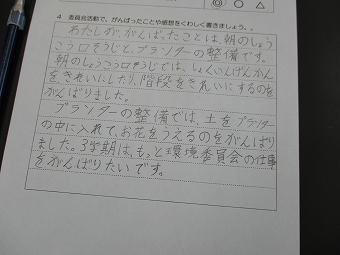 ◎ ○ △
4 委員会活動で、がんばったことや感想をくわしく書きましょう。
わたしが、がんばったことは、朝のしょう
こう口そうじと、プランターの整備です。
朝のしょうこう口そうじでは、しょくいんげんかん
をきれいにしたり、階段をきれいにするのを
がんばりました。
プランターの整備では、土をプランター
の中に入れて、お花をうえるのをがんばり
ました。3学期は、もっと環境委員会の仕事
をがんばりたいです。